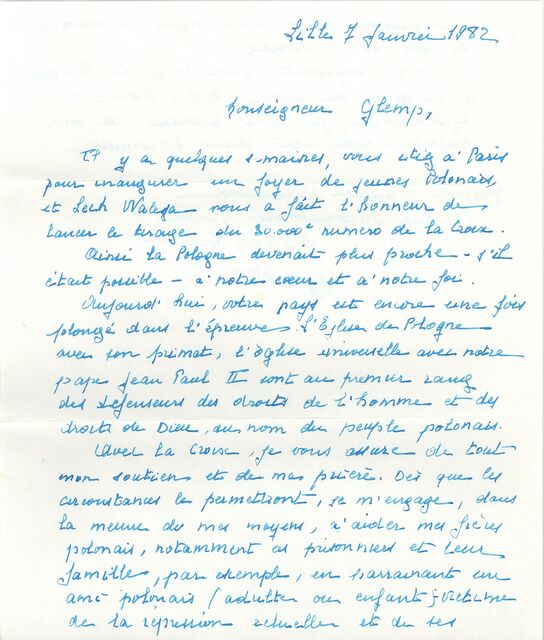 Lille 7 Janvier 1982
Monseigneur Glemp,
Il y a quelques semaines, vous étiez à Paris
pour inaugurer un foyer de jeunes Polonais,
et Lech Walesa nous a fait l'honneur de
lancer le tirage du 30.000e numéro de la Croix.
Ainsi la Pologne devenait plus proche - s'il
était possible - à notre cœur et à notre foi.
Aujourd'hui, votre pays est encore une fois
plongé dans l'épreuve. L'Eglise de Pologne
avec son primat, l'église universelle avec notre
pape Jean Paul II sont au premier rang
des défenseurs des droits de l'homme et des
droits de Dieu, au nom du peuple polonais.
Avec la Croix, je vous assure de tout
mon soutien et de mes prière. Dès que les
circonstances le permettront, je m'engage, dans
la mesure de mes moyens, à aider mes frères
polonais, notamment les prisonniers et leur
famille, par exemple, en parrainant un
ami polonais (adulte ou enfant) victime
de la répression actuelle et de ses